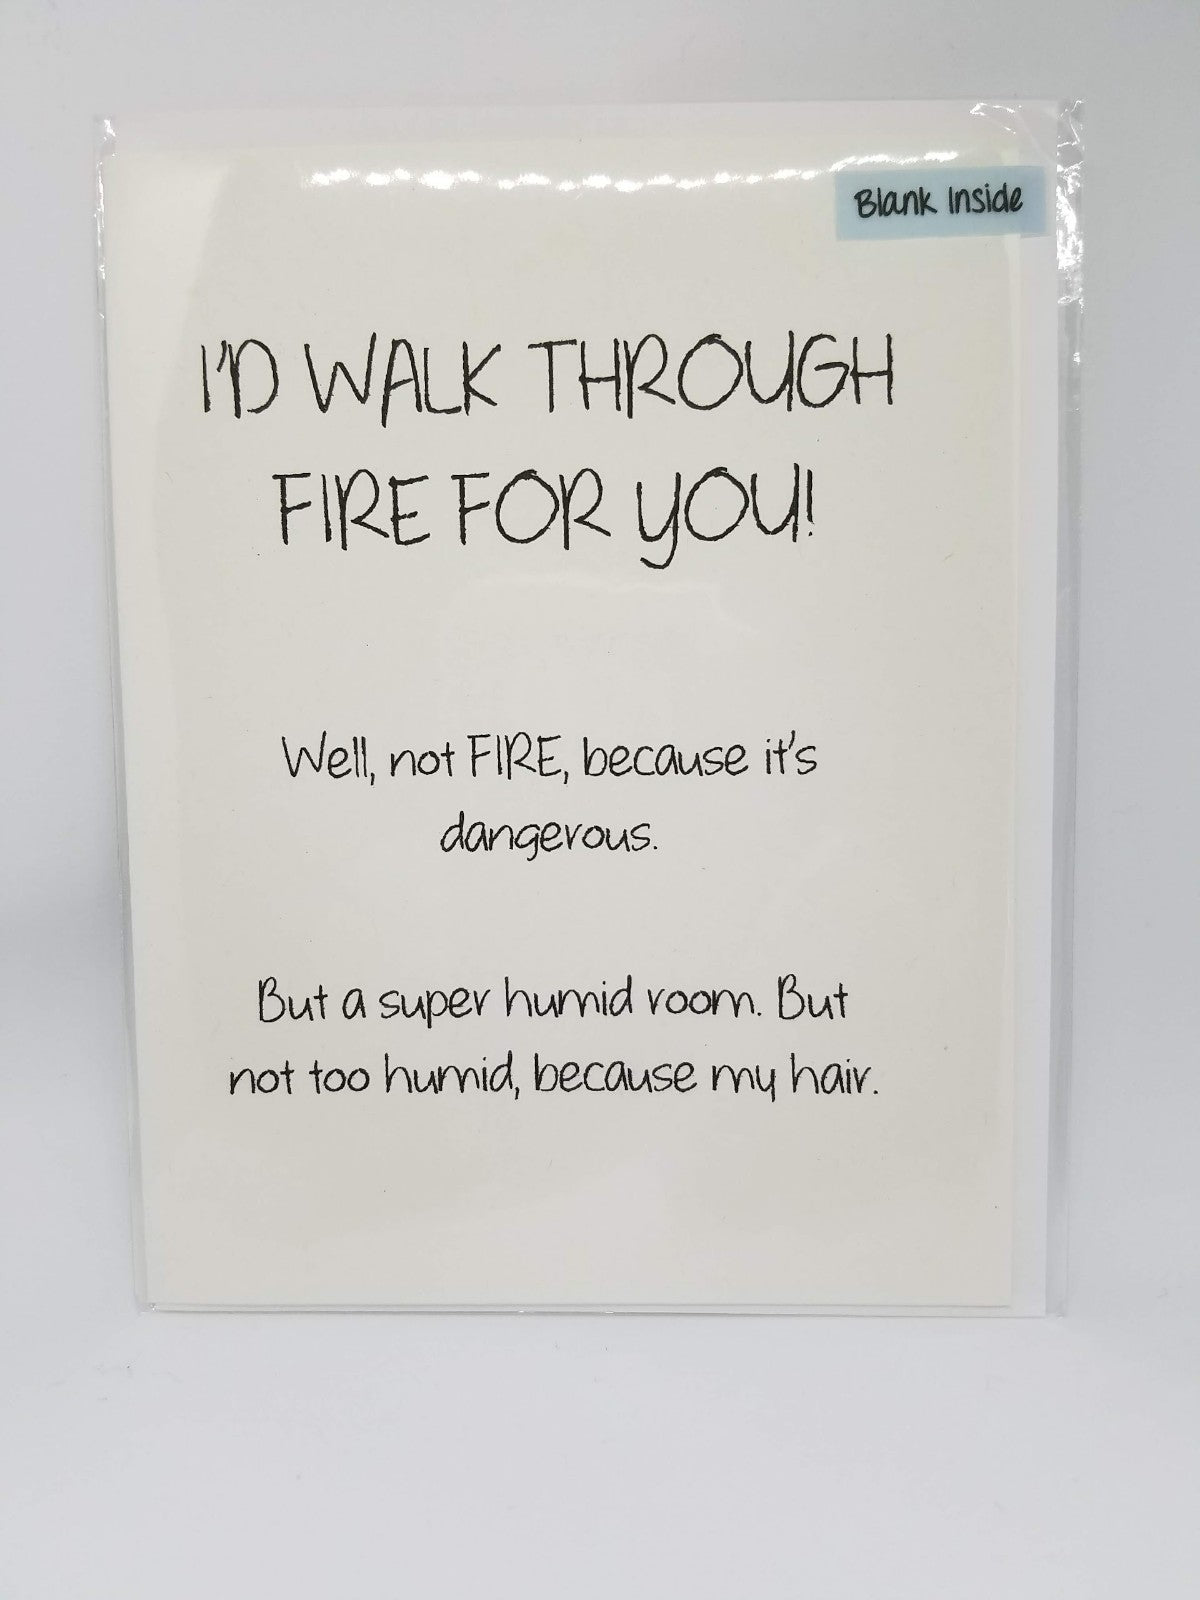 Blank Inside
I'D WALK THROUGH
FIRE FOR YOU!
Well, not FIRE, because it's
dangerous.
But a super humid room. But
not too humid, because my hair.